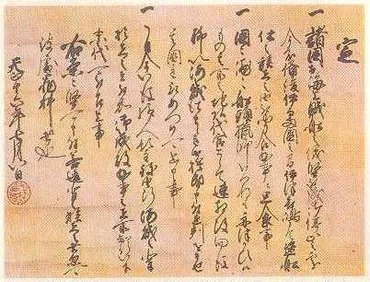 定
一 諸國於海上賊船之儀堅被成御停止之處
今度備後伊与両國之間伊津喜嶋にて盗船
仕之族在之由被聞食曲事ニ思食事
一 國々浦々船頭猟師いつれも舟つかひ候
もの其所之地頭代官として速相改向後
聊以海賊仕ましき由誓紙申付連判をさせ
其國主取あつめ可上申事
一 自今以後給人領主致由断海賊之輩
於在之者被加御成敗曲事之在所知行以下
末代可被召上事
右条々堅可申付若違背之族在之者忽可
被處罪科者也
天正十六年七月八日